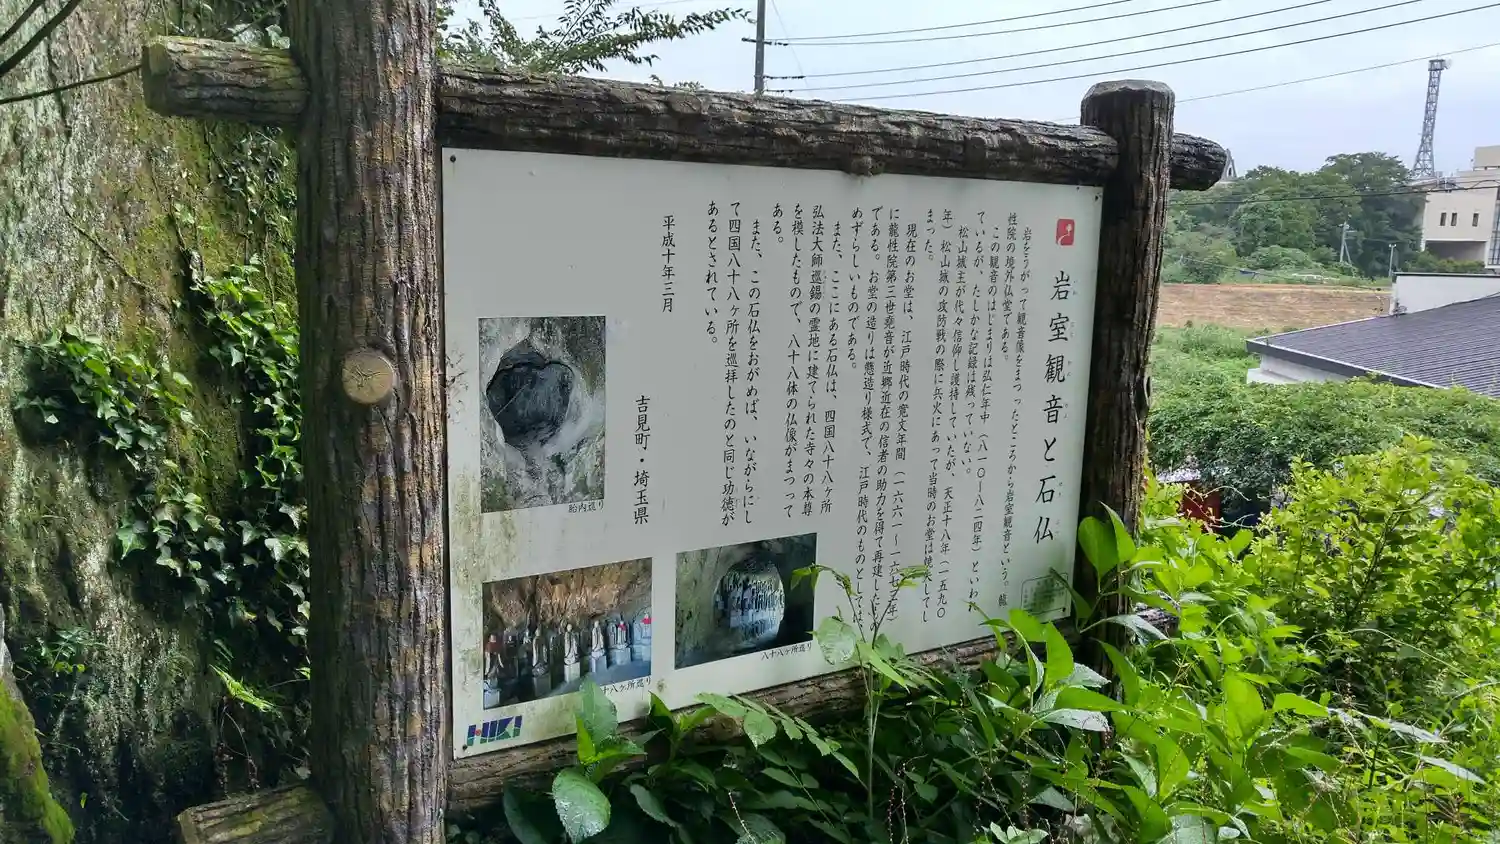 岩室観音と石仏
岩をうがって観音像をまつったところから岩室観音という。龍
性院の境外仏堂である。
この観音のはじまりは弘仁年中（八一〇―八二四年）といわ
ているが、たしかな記録は残っていない。
松山城主が代々信仰し護持していたが、天正十八年（一五九〇
年）松山城の攻防戦の際に兵火にあって当時のお堂は焼失してし
まった。
現在のお堂は、江戸時代の寛文年間（一六六一〜一六七三年）
に龍性院第三世堯音が近郷近在の信者の助力を得て再建したも
である。お堂の造りは懸造り様式で、江戸時代のものとしては、
めずらしいものである。
また、ここにある石仏は、四国八十八ヶ所
弘法大師巡錫の霊地に建てられた寺々の本尊
を模したもので、八十八体の仏像がまつって
ある。
また、この石仏をおがめば、いながらにし
て四国八十八ヶ所を巡拝したのと同じ功徳が
あるとされている。
平成十年三月
吉見町・埼玉県
胎内巡り
八十八ヶ所巡り
十八ヶ所巡り
HIKI